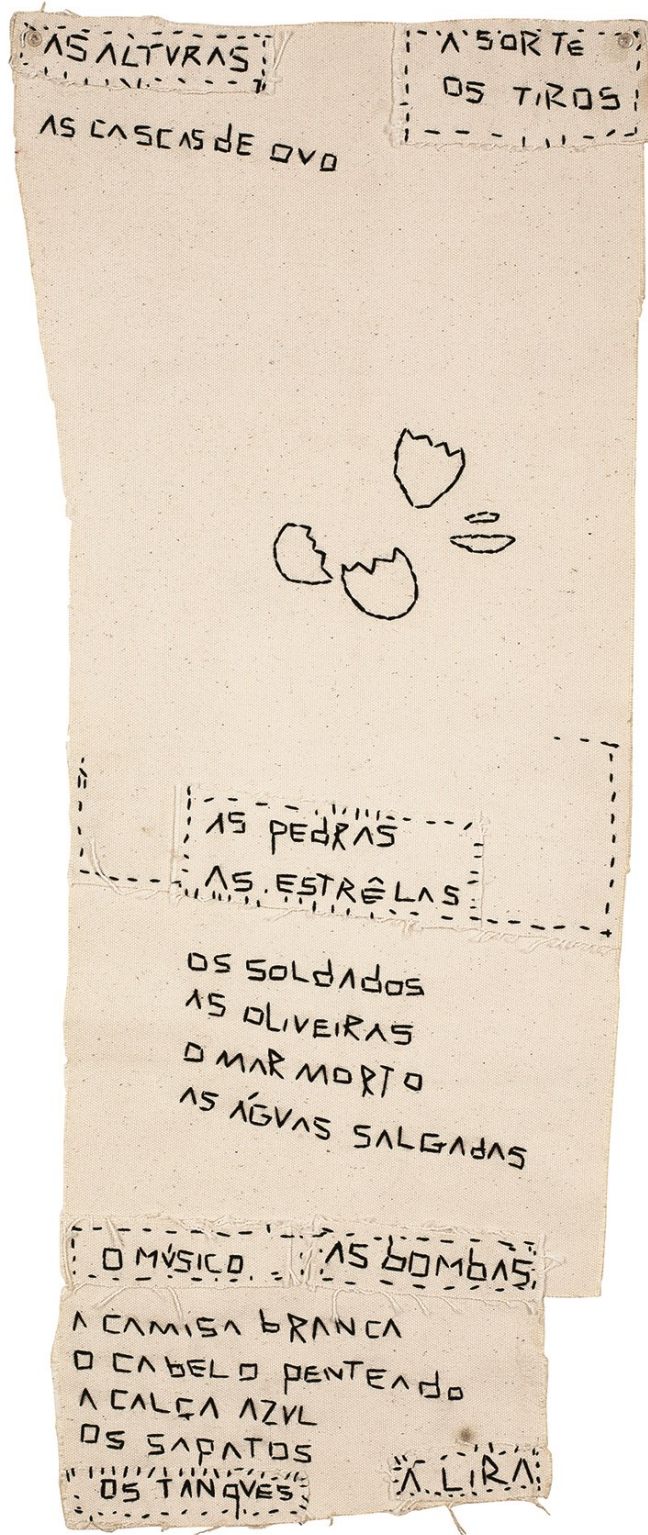 AS ALTVRAS
A SORTE
OS TIROS
AS CASCAS dE OVO
AS PEdRAS
AS ESTRÊLAS
OS SOLdAdOS
AS OLIVEIRAS
O MAR MORTO
AS ÁGVAS SALGAdAS
O MÚSICO
AS bOMbAS
A CAMISA bRANCA
O CAbELO PENTEAdo
A CALÇA AZVL
OS SAPATOS
OS TANqVES
A LIRA